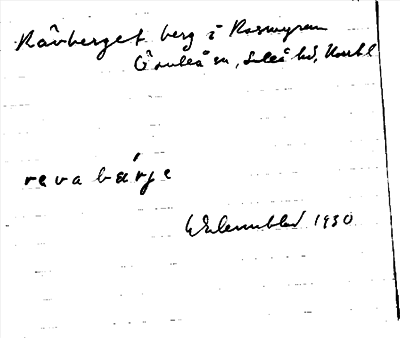 Råvberget berg i Rosmyran
Öruleå sn, Luleå kd, Norrb l
reva bárje
Wilennblad 1930